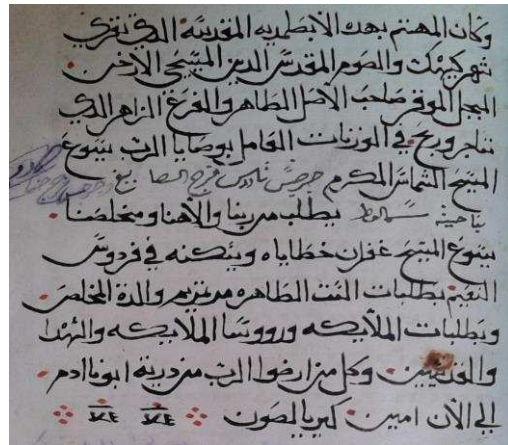 وكان المهتم بهده الابصلمديه المقدسه الدي تقري
شهر كيهك والصوم المقدس الدين المسيحي الارخن
البجل الموقر صاحب الاصل الطاهر والفرع الزاهر الدي
تتاجر وربح في الوزنات العامل بوصايا الرب يسوع
المسيح الشماس المكرم جرجس تادرس فرج
بناحية يطلب من ربنا والاهنا ومخلصنا
يسوع المسيح غفران خطاياه ويسكنه في فردوس
النعيم بطلبات الست الطاهره مرتمريم والدة المخلص
وبطلبات الملايكه ورووسا الملايكه والشهدا
والقديسين وكل من ارضوا الرب من درية ابونا ادم
الي الان امين كيرياليصون